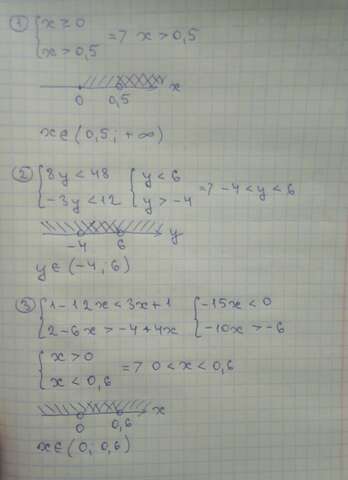 ① { x ≥ 0
x > 0,5 => x > 0,5
0 0,5 x
x ∈ (0,5; +∞)
② { 8y < 48 { y < 6
-3y < 12 y > -4 => -4 < y < 6
-4 6 y
y ∈ (-4; 6)
③ { 1-12x < 3x+1 { -15x < 0
2-6x > -4+4x -10x > -6
{ x > 0
x < 0,6 => 0 < x < 0,6
0 0,6 x
x ∈ (0; 0,6)